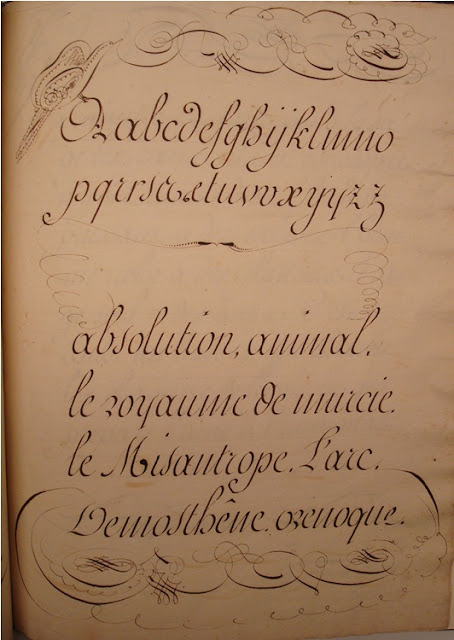 A abcdefghijklmno
pqrrsſstuvvxyyzz
absolution, animal,
le royaume de murcie.
le Misantrope. L'arc.
Demosthêne. orenoque.